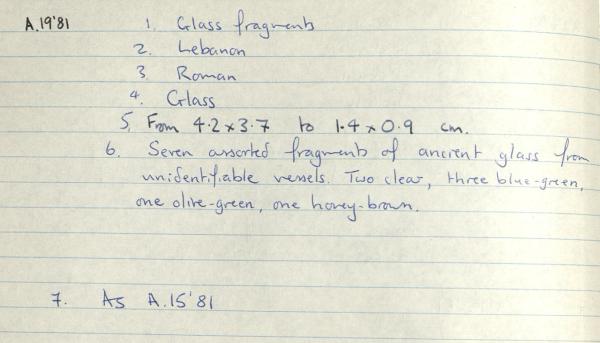 A.19'81 1. Glass fragments
2. Lebanon
3. Roman
4. Glass
5. From 4.2 x 3.7 to 1.4 x 0.9 cm.
6. Seven assorted fragments of ancient glass from
unidentifiable vessels. Two clear, three blue-green,
one olive-green, one honey-brown.
7. As A.15'81